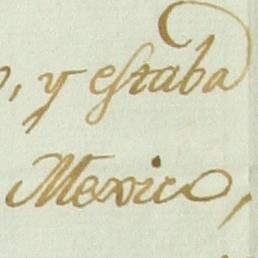 , y estaba
Mexico,